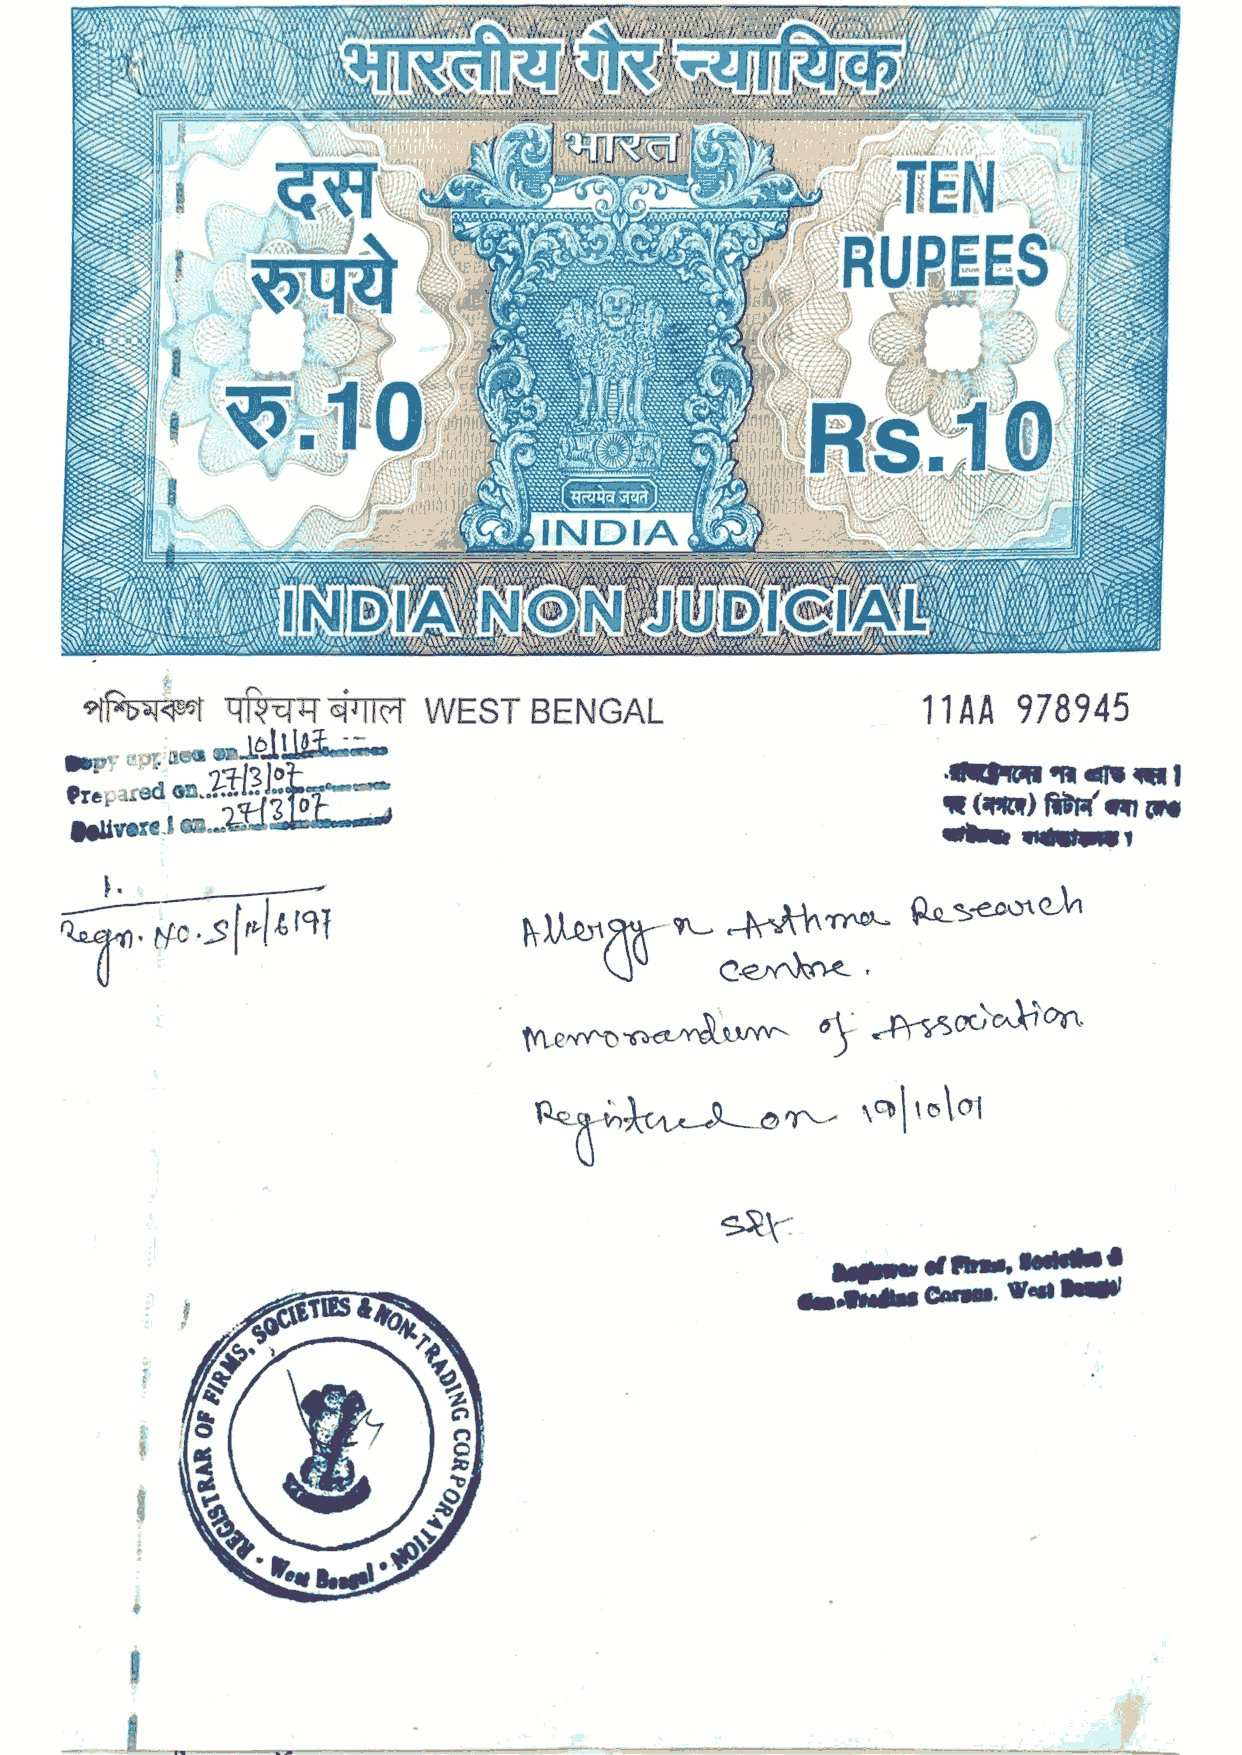 भारतीय गैर न्यायिक
भारत
दस
रुपये
रु.10
TEN
RUPEES
Rs.10
सत्यमेव जयते
INDIA
INDIA NON JUDICIAL
পশ্চিমবঙ্গ पश्चिम बंगाल WEST BENGAL
11AA 978945
Copy applied on 10/1/07
Prepared on 27/3/07
Delivered on 27/3/07
পর প্রতি বছর।
(নগদে) রিটার্ন জমা
1.
Regn. No. S/
Allergy n Asthma Research
Centre.
Memorandum of Association
Registered on 19/10/01
Sd/-
Registrar of Firms, Societies &
Non-Trading Corpns. West Bengal
REGISTRAR OF FIRMS, SOCIETIES & NON-TRADING CORPORATION
West Bengal